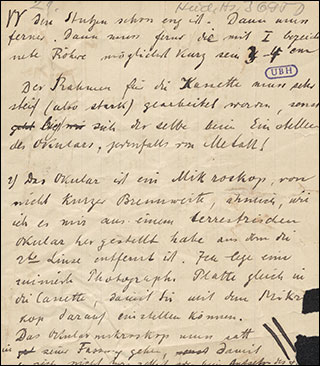 Heid. Hs. 3695
VV Den Stutzen schon eng ist. Dann muss
ferner. Dann muss ferner die mit I bezeich
nete Röhre möglichst kurz sein 4 cm
UBH
Der Rahmen für die Kasette muss sehr
steif (also stark) gearbeitet werden, sonst
sich der selbe beim Einstellen
des Okulars, jedenfalls von Metall!
2) Das Okular ist ein Mikroskop, von
nicht kurzer Brennweite, ähnlich, wie
ich es mir aus einem terrestreiden
Okular hergestellt habe aus dem die
2te Linse entfernt ist. Ich lege eine
Photograph. Platte gleich in
die Casette, damit Sie mit dem Mikros
kop darauf einstellen können.
Das Okularmikroskop muss satt
in seiner Fassung gehen, damit